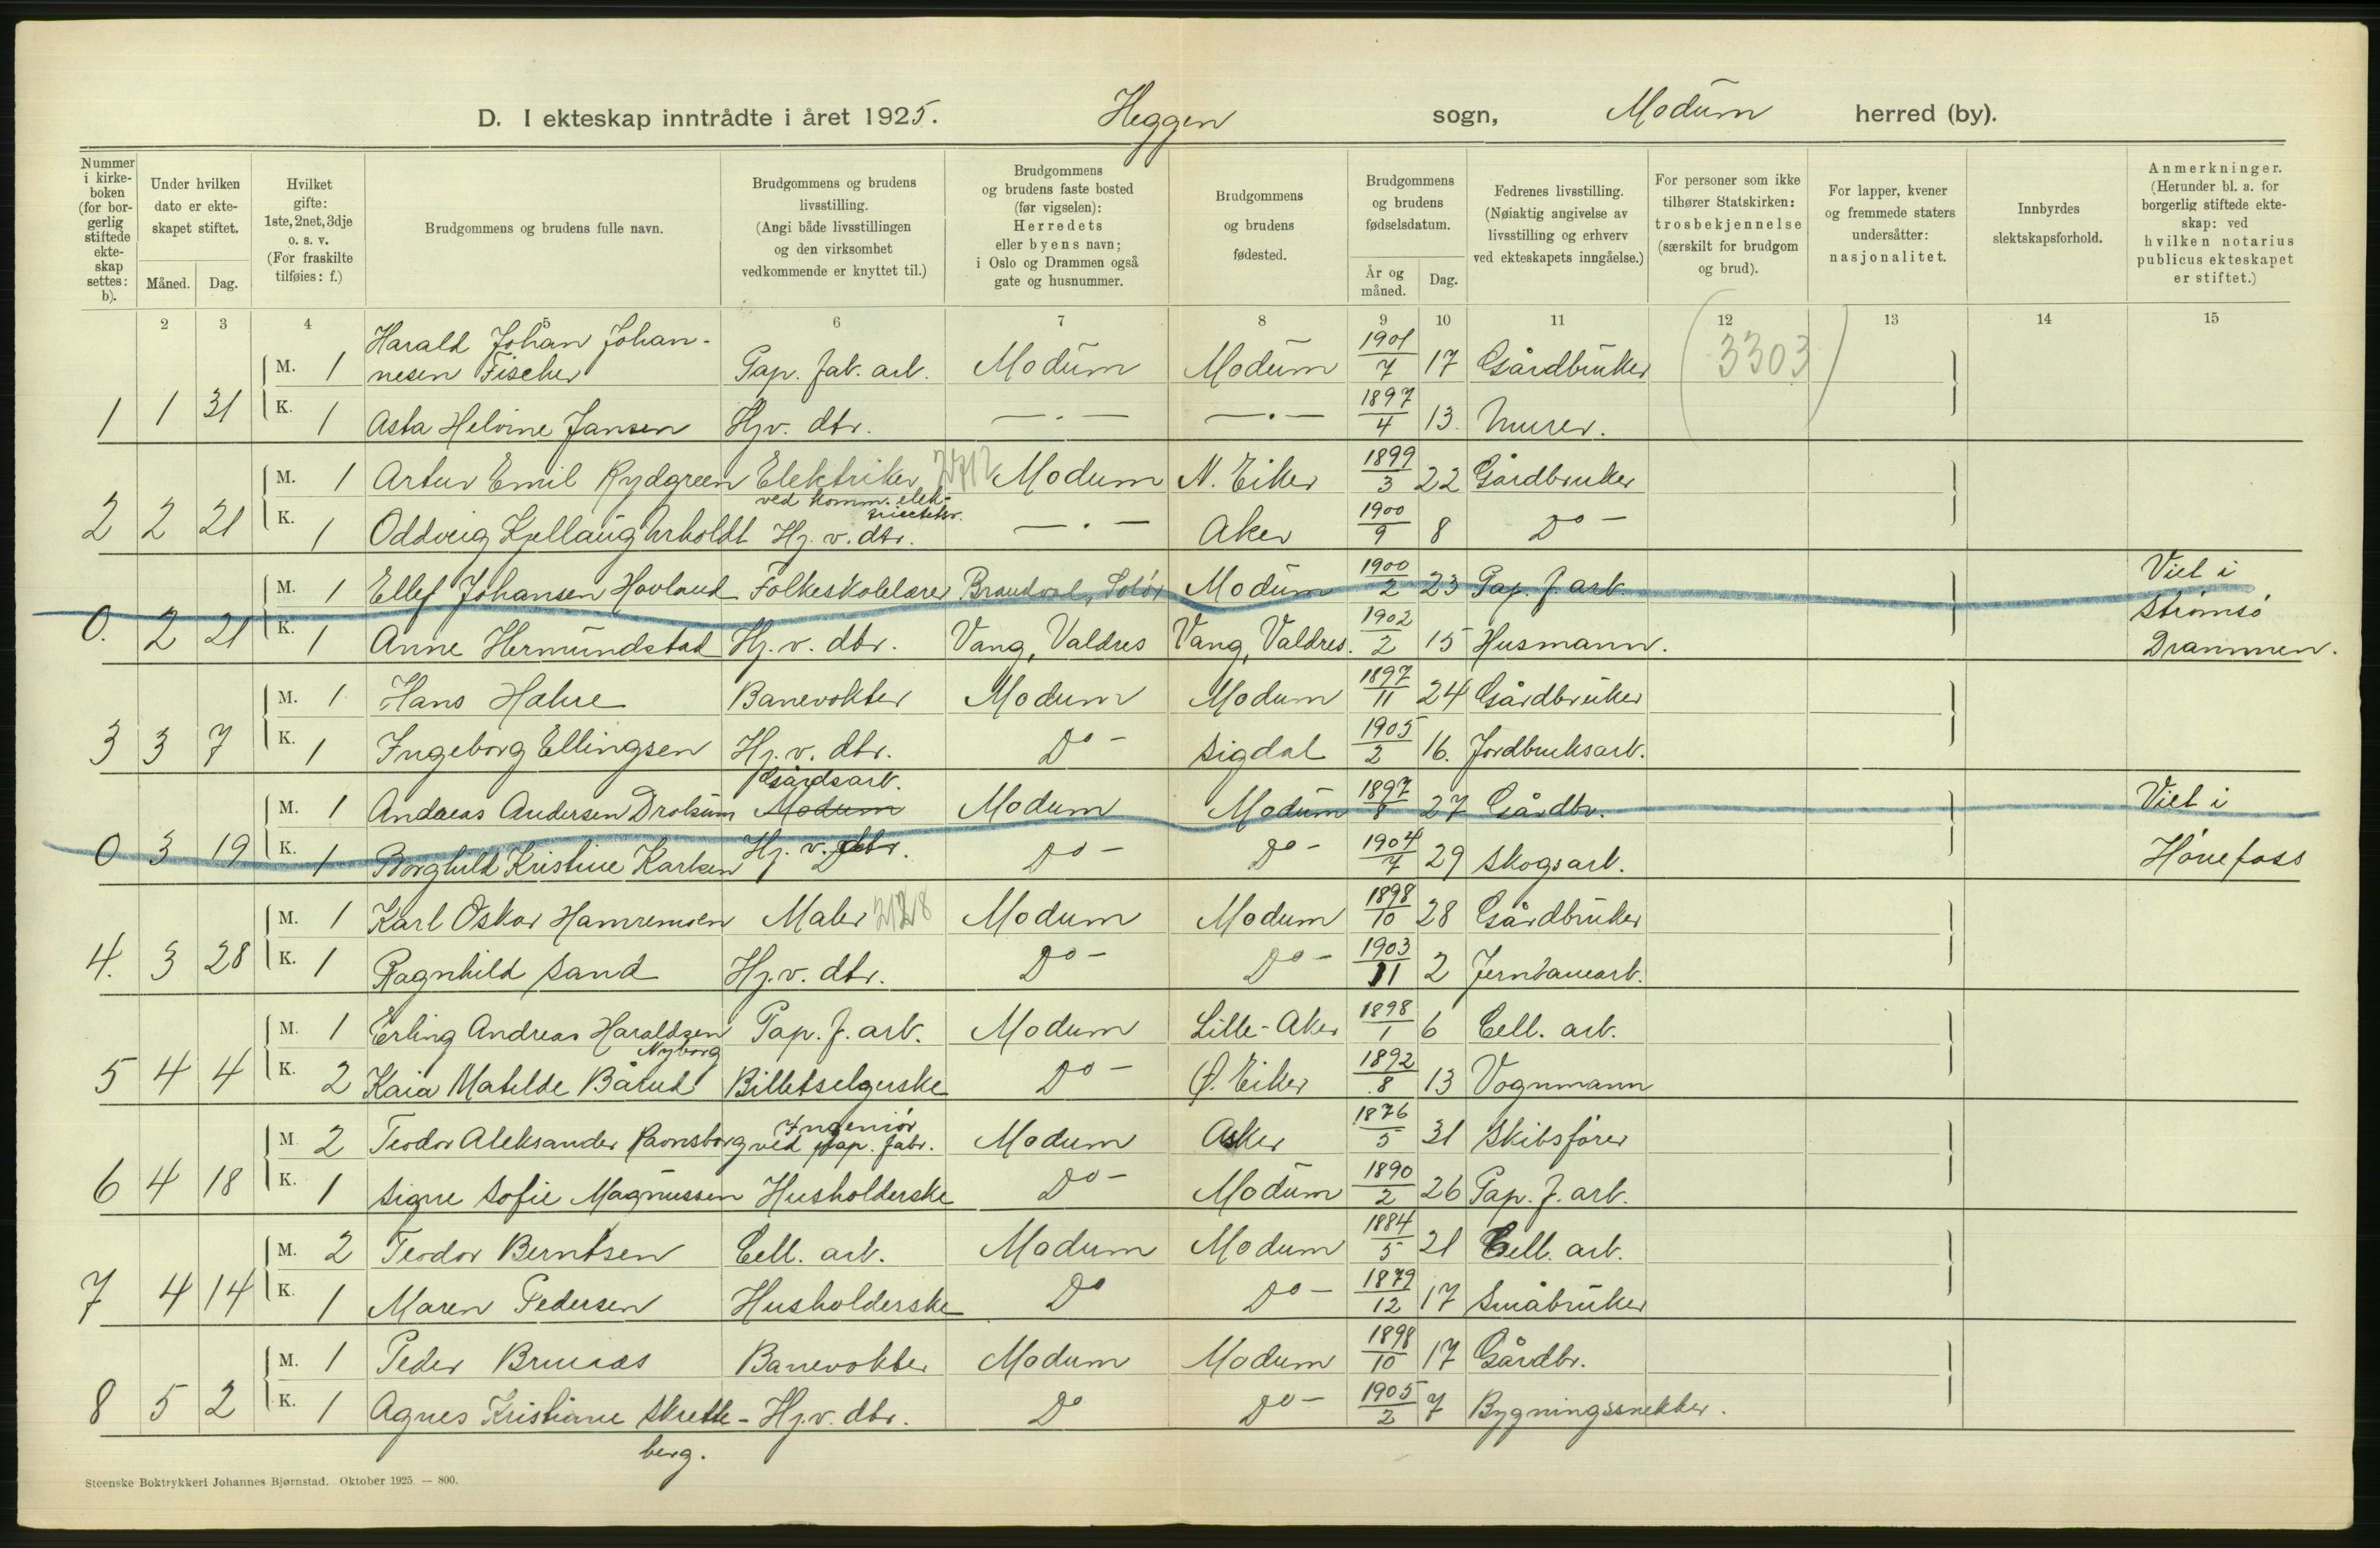 D. I ekteskap inntrådte i året 1925. Heggen sogn, Modum herred (by).
Nummer i kirkeboken (for borgerlig stiftede ekteskap settes: b).
Under hvilken dato er ekteskapet stiftet.
Måned. Dag.
Hvilket gifte: 1ste, 2net, 3dje o. s. v. (For fraskilte tilføies: f.)
Brudgommens og brudens fulle navn.
Brudgommens og brudens livsstilling. (Angi både livsstillingen og den virksomhet vedkommende er knyttet til.)
Brudgommens og brudens faste bosted (før vigselen): Herredets eller byens navn; i Oslo og Drammen også gate og husnummer.
Brudgommens og brudens fødested.
Brudgommens og brudens fødselsdatum.
År og måned. Dag.
Fedrenes livsstilling. (Nøiaktig angivelse av livsstilling og erhverv ved ekteskapets inngåelse.)
For personer som ikke tilhører Statskirken: trosbekjennelse (særskilt for brudgom og brud).
For lapper, kvener og fremmede staters undersåtter: nasjonalitet.
Innbyrdes slektskapsforhold.
Anmerkninger. (Herunder bl. a. for borgerlig stiftede ekteskap: ved hvilken notarius publicus ekteskapet er stiftet.)
2 3 4 5 6 7 8 9 10 11 12 13 14 15
M. 1 Harald Johan Johannesen Fischer Pap. fab. arb. Modum Modum 1901/7 17 Gårdbruker (3303)
1 1 31 K. 1 Asta Helvine Jansen Hjv. dtr. — · — — · — 1897/4 13. Murer.
M. 1 Artur Emil Rydgreen Elektriker ved komm. elek- Modum N. Eiker 1899/3 22 Gårdbruker
2 2 21 K. 1 Oddveig Kjellaug Hj. v. dtr. — · — Aker 1900/9 8 Do –
M. 1 Ellef Johansen Hovland Folkeskolelærer Brandval, Solør Modum 1900/2 23 Pap. f. arb. Viet i
0. 2 21 K. 1 Anne Hermundstad Hj. v. dtr. Vang, Valdres Vang, Valdres. 1902/2 15 Husmann. Strømsø Drammen.
M. 1 Hans Hæhre Banevokter Modum Modum 1897/11 24 Gårdbruker
3 3 7 K. 1 Ingeborg Ellingsen Hj. v. dtr. Do – Sigdal 1905/2 16. Jordbruksarb.
M. 1 Andreas Andersen Drolsum Gårdsarb. Modum Modum Modum 1897/8 27 Gårdbr. Viet i
0 3 19 K. 1 Borghild Kristine Karlsen Hj. v. dtr. Do – Do – 1904/7 29 Skogsarb. Hønefoss
M. 1 Karl Oskar Hamremoen Maler 2128 Modum Modum 1898/10 28 Gårdbruker
4. 3 28 K. 1 Ragnhild Sand Hj. v. dtr. Do – Do – 1903/11 2 Jernbanearb.
M. 1 Erling Andreas Haraldsen Nyborg Pap. f. arb. Modum Lille-Aker 1898/1 6 Cell. arb.
5 4 4 K. 2 Kaia Matilde Bårud Billetselgerske Do – Ø. Eiker 1892/8 13 Vognmann
M. 2 Teodor Aleksander Ramsborg Ingeniør ved pap. fabr. Modum Asker 1876/5 31 Skibsfører
6 4 18 K. 1 Signe Sofie Magnussen Husholderske Do – Modum 1890/2 26 Pap. f. arb.
M. 2 Teodor Berntsen Cell. arb. Modum Modum 1884/5 21 Cell. arb.
7 4 14 K. 1 Maren Pedersen Husholderske Do Do – 1879/12 17 Småbruker
M. 1 Peder Bruaas Banevokter Modum Modum 1898/10 17 Gårdbr.
8 5 2 K. 1 Agnes Kristiane Skretteberg. Hj. v. dtr. Do Do – 1905/2 7 Bygningssnekker.
Steenske Boktrykkeri Johannes Bjørnstad. Oktober 1925. — 800.